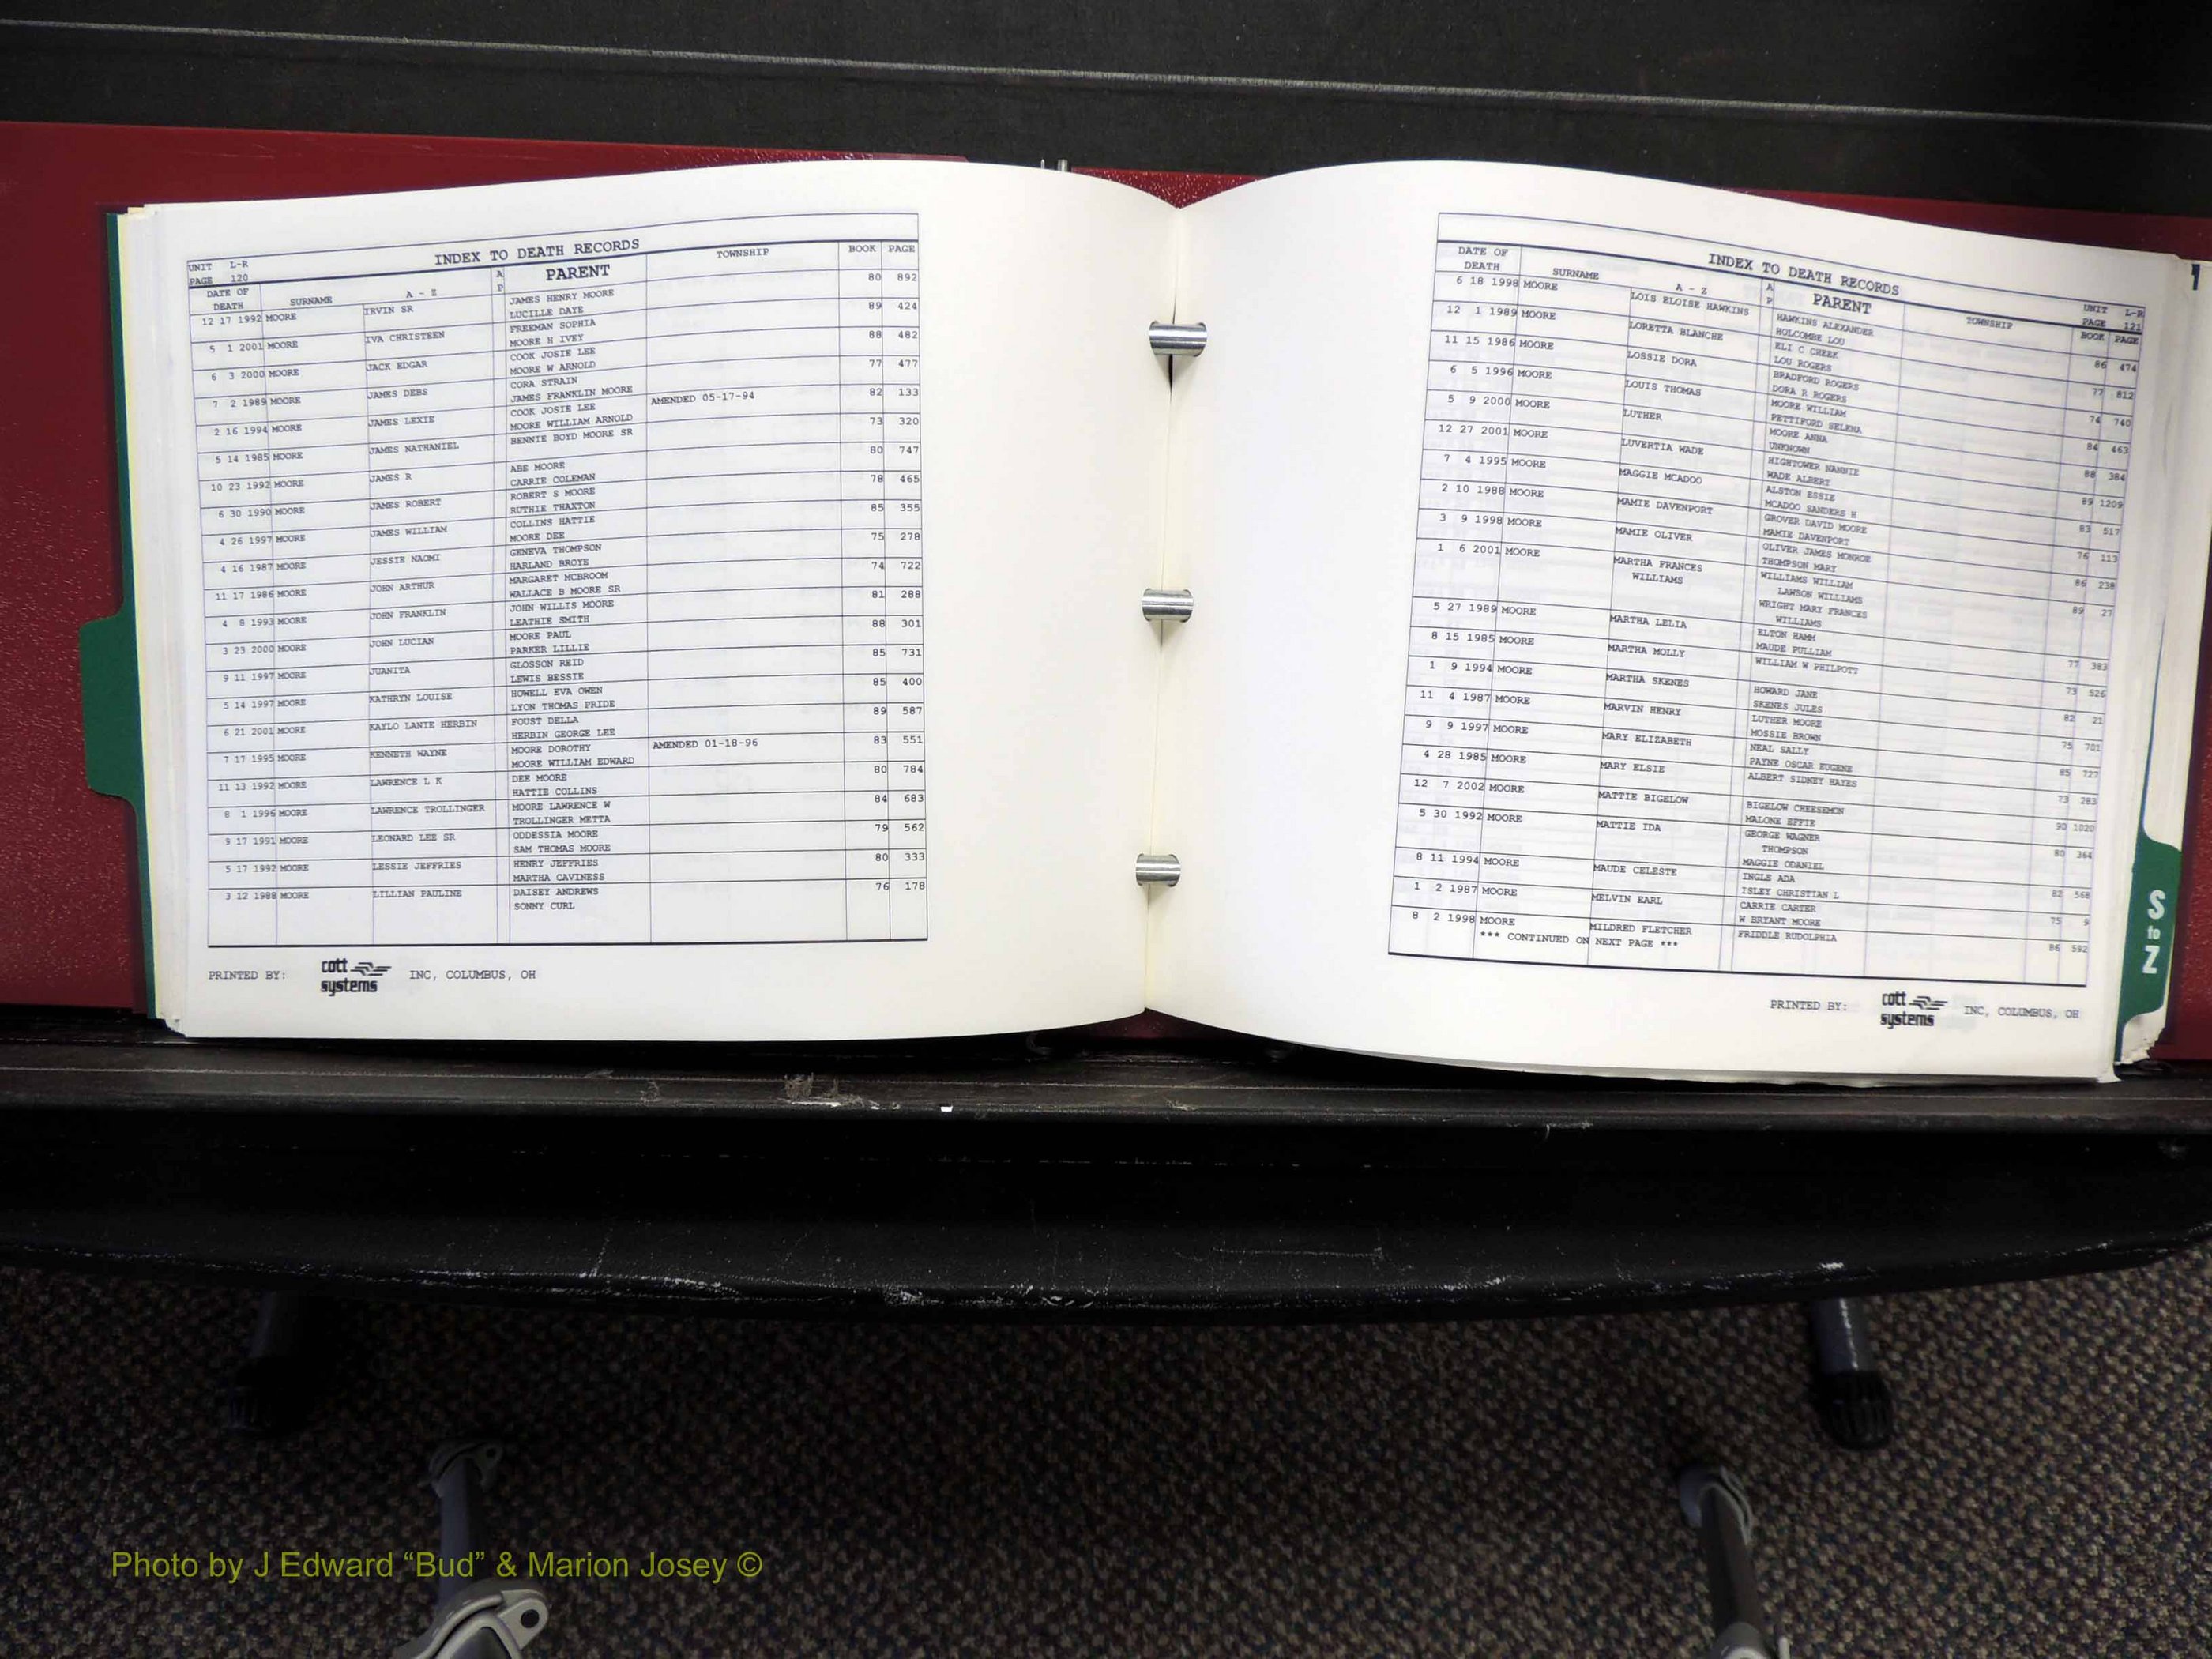 INDEX TO DEATH RECORDS
UNIT L-R
PAGE 120
DATE OF DEATH SURNAME A - Z A P PARENT TOWNSHIP BOOK PAGE
12 17 1992 MOORE IRVIN SR JAMES HENRY MOORE 80 892
LUCILLE DAYE
5 1 2001 MOORE IVA CHRISTEEN FREEMAN SOPHIA 89 424
MOORE H IVEY
6 3 2000 MOORE JACK EDGAR COOK JOSIE LEE 88 482
MOORE W ARNOLD
7 2 1989 MOORE JAMES DEBS CORA STRAIN 77 477
JAMES FRANKLIN MOORE
2 16 1994 MOORE JAMES LEXIE COOK JOSIE LEE AMENDED 05-17-94 82 133
MOORE WILLIAM ARNOLD
5 14 1985 MOORE JAMES NATHANIEL BENNIE BOYD MOORE SR 73 320
10 23 1992 MOORE JAMES R ABE MOORE 80 747
CARRIE COLEMAN
6 30 1990 MOORE JAMES ROBERT ROBERT S MOORE 78 465
RUTHIE THAXTON
4 26 1997 MOORE JAMES WILLIAM COLLINS HATTIE 85 355
MOORE DEE
4 16 1987 MOORE JESSIE NAOMI GENEVA THOMPSON 75 278
HARLAND BROYE
11 17 1986 MOORE JOHN ARTHUR MARGARET MCBROOM 74 722
WALLACE B MOORE SR
4 8 1993 MOORE JOHN FRANKLIN JOHN WILLIS MOORE 81 288
LEATHIE SMITH
3 23 2000 MOORE JOHN LUCIAN MOORE PAUL 88 301
PARKER LILLIE
9 11 1997 MOORE JUANITA GLOSSON REID 85 731
LEWIS BESSIE
5 14 1997 MOORE KATHRYN LOUISE HOWELL EVA OWEN 85 400
LYON THOMAS PRIDE
6 21 2001 MOORE KAYLO LANIE HERBIN FOUST DELLA 89 587
HERBIN GEORGE LEE
7 17 1995 MOORE KENNETH WAYNE MOORE DOROTHY AMENDED 01-18-96 83 551
MOORE WILLIAM EDWARD
11 13 1992 MOORE LAWRENCE L K DEE MOORE 80 784
HATTIE COLLINS
8 1 1996 MOORE LAWRENCE TROLLINGER MOORE LAWRENCE W 84 683
TROLLINGER METTA
9 17 1991 MOORE LEONARD LEE SR ODDESSIA MOORE 79 562
SAM THOMAS MOORE
5 17 1992 MOORE LESSIE JEFFRIES HENRY JEFFRIES 80 333
MARTHA CAVINESS
3 12 1988 MOORE LILLIAN PAULINE DAISEY ANDREWS 76 178
SONNY CURL
PRINTED BY: cott systems INC, COLUMBUS, OH
INDEX TO DEATH RECORDS
UNIT L-R
PAGE 121
DATE OF DEATH SURNAME A - Z A P PARENT TOWNSHIP BOOK PAGE
6 18 1998 MOORE LOIS ELOISE HAWKINS HAWKINS ALEXANDER 86 474
HOLCOMBE LOU
12 1 1989 MOORE LORETTA BLANCHE ELI C CHEEK 77 812
LOU ROGERS
11 15 1986 MOORE LOSSIE DORA BRADFORD ROGERS 74 740
DORA R ROGERS
6 5 1996 MOORE LOUIS THOMAS MOORE WILLIAM 84 463
PETTIFORD SELENA
5 9 2000 MOORE LUTHER MOORE ANNA 88 384
UNKNOWN
12 27 2001 MOORE LUVERTIA WADE HIGHTOWER NANNIE 89 1209
WADE ALBERT
7 4 1995 MOORE MAGGIE MCADOO ALSTON ESSIE 83 517
MCADOO SANDERS H
2 10 1988 MOORE MAMIE DAVENPORT GROVER DAVID MOORE 76 113
MAMIE DAVENPORT
3 9 1998 MOORE MAMIE OLIVER OLIVER JAMES MONROE 86 238
THOMPSON MARY
1 6 2001 MOORE MARTHA FRANCES WILLIAMS WILLIAM 89 27
WILLIAMS LAWSON WILLIAMS
WRIGHT MARY FRANCES
WILLIAMS
5 27 1989 MOORE MARTHA LELIA ELTON HAMM 77 383
MAUDE PULLIAM
8 15 1985 MOORE MARTHA MOLLY WILLIAM W PHILPOTT 73 526
1 9 1994 MOORE MARTHA SKENES HOWARD JANE 82 21
SKENES JULES
11 4 1987 MOORE MARVIN HENRY LUTHER MOORE 75 701
MOSSIE BROWN
9 9 1997 MOORE MARY ELIZABETH NEAL SALLY 85 727
PAYNE OSCAR EUGENE
4 28 1985 MOORE MARY ELSIE ALBERT SIDNEY HAYES 73 283
12 7 2002 MOORE MATTIE BIGELOW BIGELOW CHEESEMON 90 1020
MALONE EFFIE
5 30 1992 MOORE MATTIE IDA GEORGE WAGNER 80 364
THOMPSON
MAGGIE ODANIEL
8 11 1994 MOORE MAUDE CELESTE INGLE ADA 82 568
ISLEY CHRISTIAN L
1 2 1987 MOORE MELVIN EARL CARRIE CARTER 75 9
W BRYANT MOORE
8 2 1998 MOORE MILDRED FLETCHER FRIDDLE RUDOLPHIA 86 592
*** CONTINUED ON NEXT PAGE ***
PRINTED BY: cott systems INC, COLUMBUS, OH
S to Z
Photo by J Edward “Bud” & Marion Josey ©